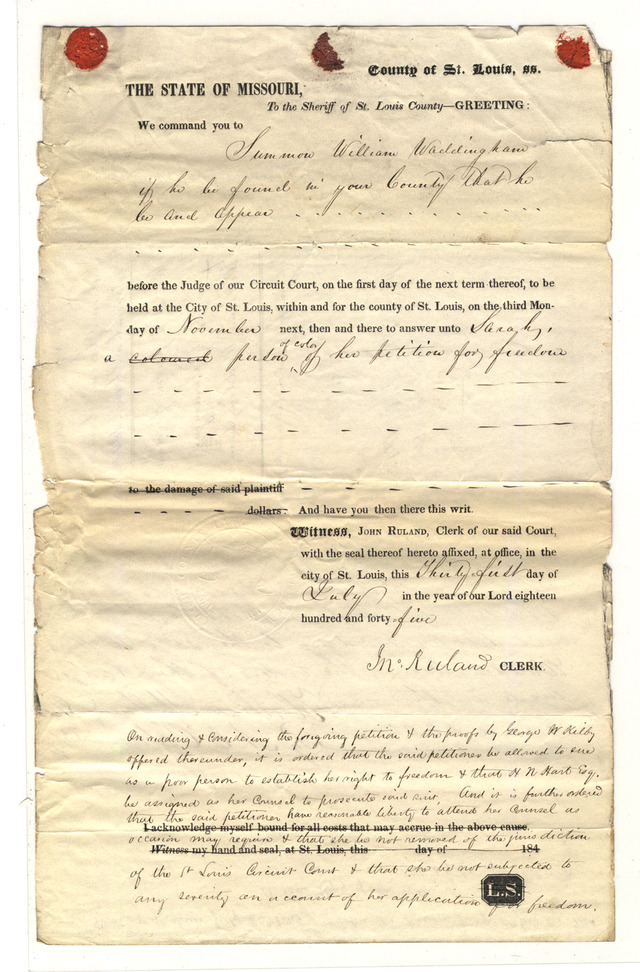 County of St. Louis, ss.
THE STATE OF MISSOURI,
To the Sheriff of St. Louis County—GREETING:
We command you to
Summon William Waddingham
if he be found in your County that he
be and appear
before the Judge of our Circuit Court, on the first day of the next term thereof, to be
held at the City of St. Louis, within and for the county of St. Louis, on the third Mon-
day of November next, then and there to answer unto Sarah,
of color
a coloured person of her petition for freedom
to the damage of said plaintiff
dollars. And have you then there this writ.
Witness, JOHN RULAND, Clerk of our said Court,
with the seal thereof hereto affixed, at office, in the
city of St. Louis, this Thirty-first day of
July in the year of our Lord eighteen
hundred and forty-five
Jno. Ruland CLERK.
On reading & Considering the foregoing petition & the proofs by George W Kilby
offered thereunder, it is ordered that the said petitioner be allowed to sue
as a poor person to establish her right to freedom & that H N Hart Esq.
be assigned as her Counsel to prosecute said suit, And it is further ordered
that the said petitioner have reasonable liberty to attend her Counsel as
I acknowledge myself bound for all costs that may accrue in the above cause.
occasion may require & that she be not removed of the jurisdiction
Witness my hand and seal, at St. Louis, this day of 184
of the St Louis Circuit Court & that she be not subjected to
L.S.
any severity on account of her application for freedom.